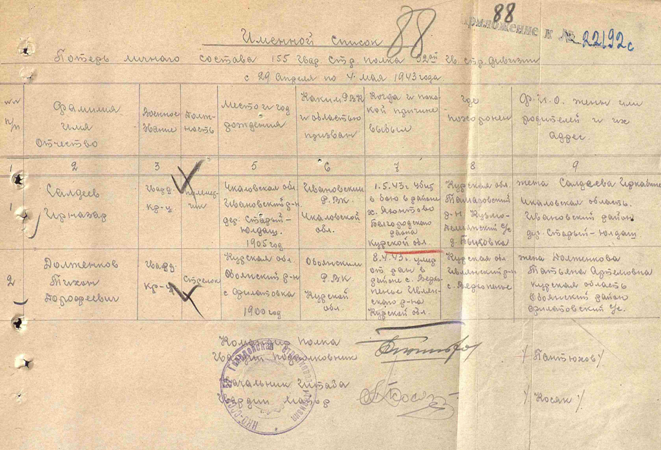 88
88
Приложение к № 22192с
Именной список
Потерь личного состава 155 Гвар Стр. полка 52ой Гв. стр. дивизии
с 29 апреля по 4 мая 1943 года
№№ п/п
Фамилия
имя
Отчество
Военное
звание
Долж-
ность
Место и год
рождения
Каким РВК
и областью
призван
Когда и по ка-
кой причине
выбыл
где
похоронен
Ф.И.О. жены или
родителей и их
адрес.
1 2 3 4 5 6 7 8 9
1
Салдеев
Гвард
кр-ц
Чкаловская обл
Ивановский р-н
дер. Старый-
Юлдаш
1905 год
Ивановским
РВК
Чкаловской
обл.
1.5.43г. убит
в бою в районе
х.
Белгородского
района
Курской обл.
Курская обл.
р-н
жена Салдеева
Чкаловская область
Ивановский район
дер. Старый-Юлдаш
2
Долженков
Тихон
Дорофеевич
Гвард
кр-ц
Стрелок
Курская обл
Обоянский р-н
с Филатовка
1900 год
Обоянским
РВК
Курской
обл.
8.4.43г. умер
от ран в
районе с.
р-на
Курской обл.
Курская об
жена Долженкова
Татьяна Артемовна
Курская область
Обоянский район
Филатовский с/с.
Командир полка
Гвардии подполковник
/Пантюхов/
Начальник Штаба
Гвардии майор
/Косяк/